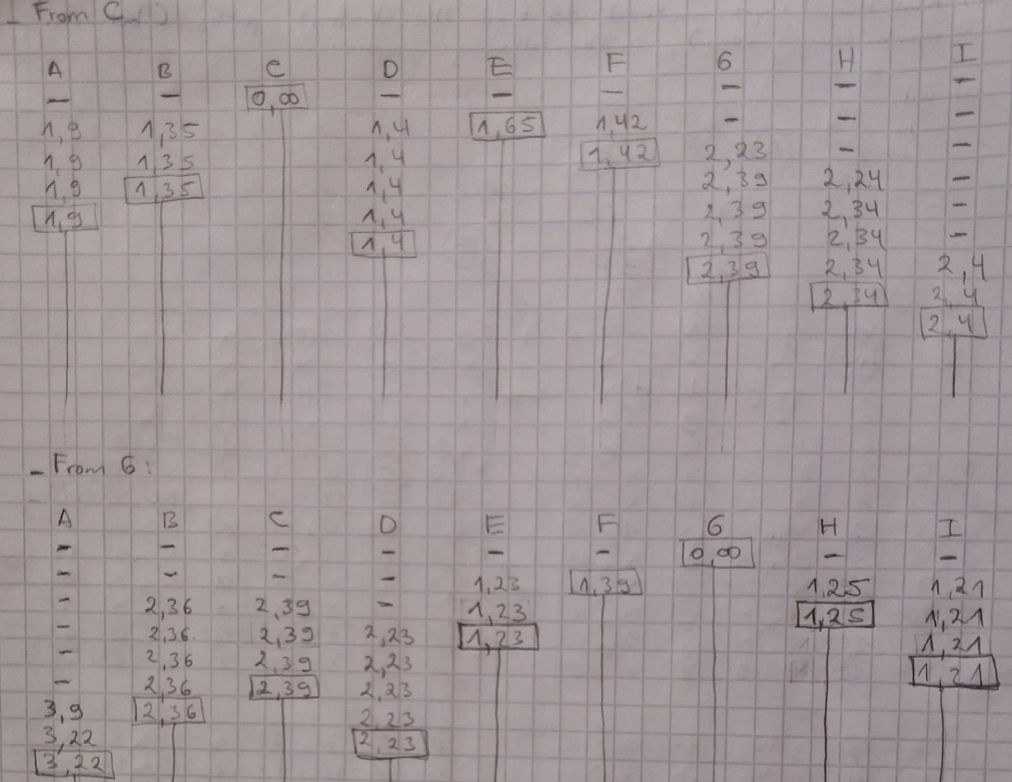 - From C
A B C D E F G H I
- - 0,∞ - - - - - -
1,9 1,35 1,4 1,65 1,42 - - -
1,9 1,35 1,4 1,42 2,23 - -
1,9 1,35 1,4 2,39 2,24 -
1,9 1,4 2,39 2,34 -
1,4 2,39 2,34 -
2,39 2,34 2,4
2,34 2,4
2,4
- From G:
A B C D E F G H I
- - - - - - 0,∞ - -
- - - - 1,23 1,39 1,25 1,21
- 2,36 2,39 - 1,23 1,25 1,21
- 2,36 2,39 2,23 1,23 1,21
- 2,36 2,39 2,23 1,21
- 2,36 2,39 2,23
3,9 2,36 2,23
3,22 2,23
3,22